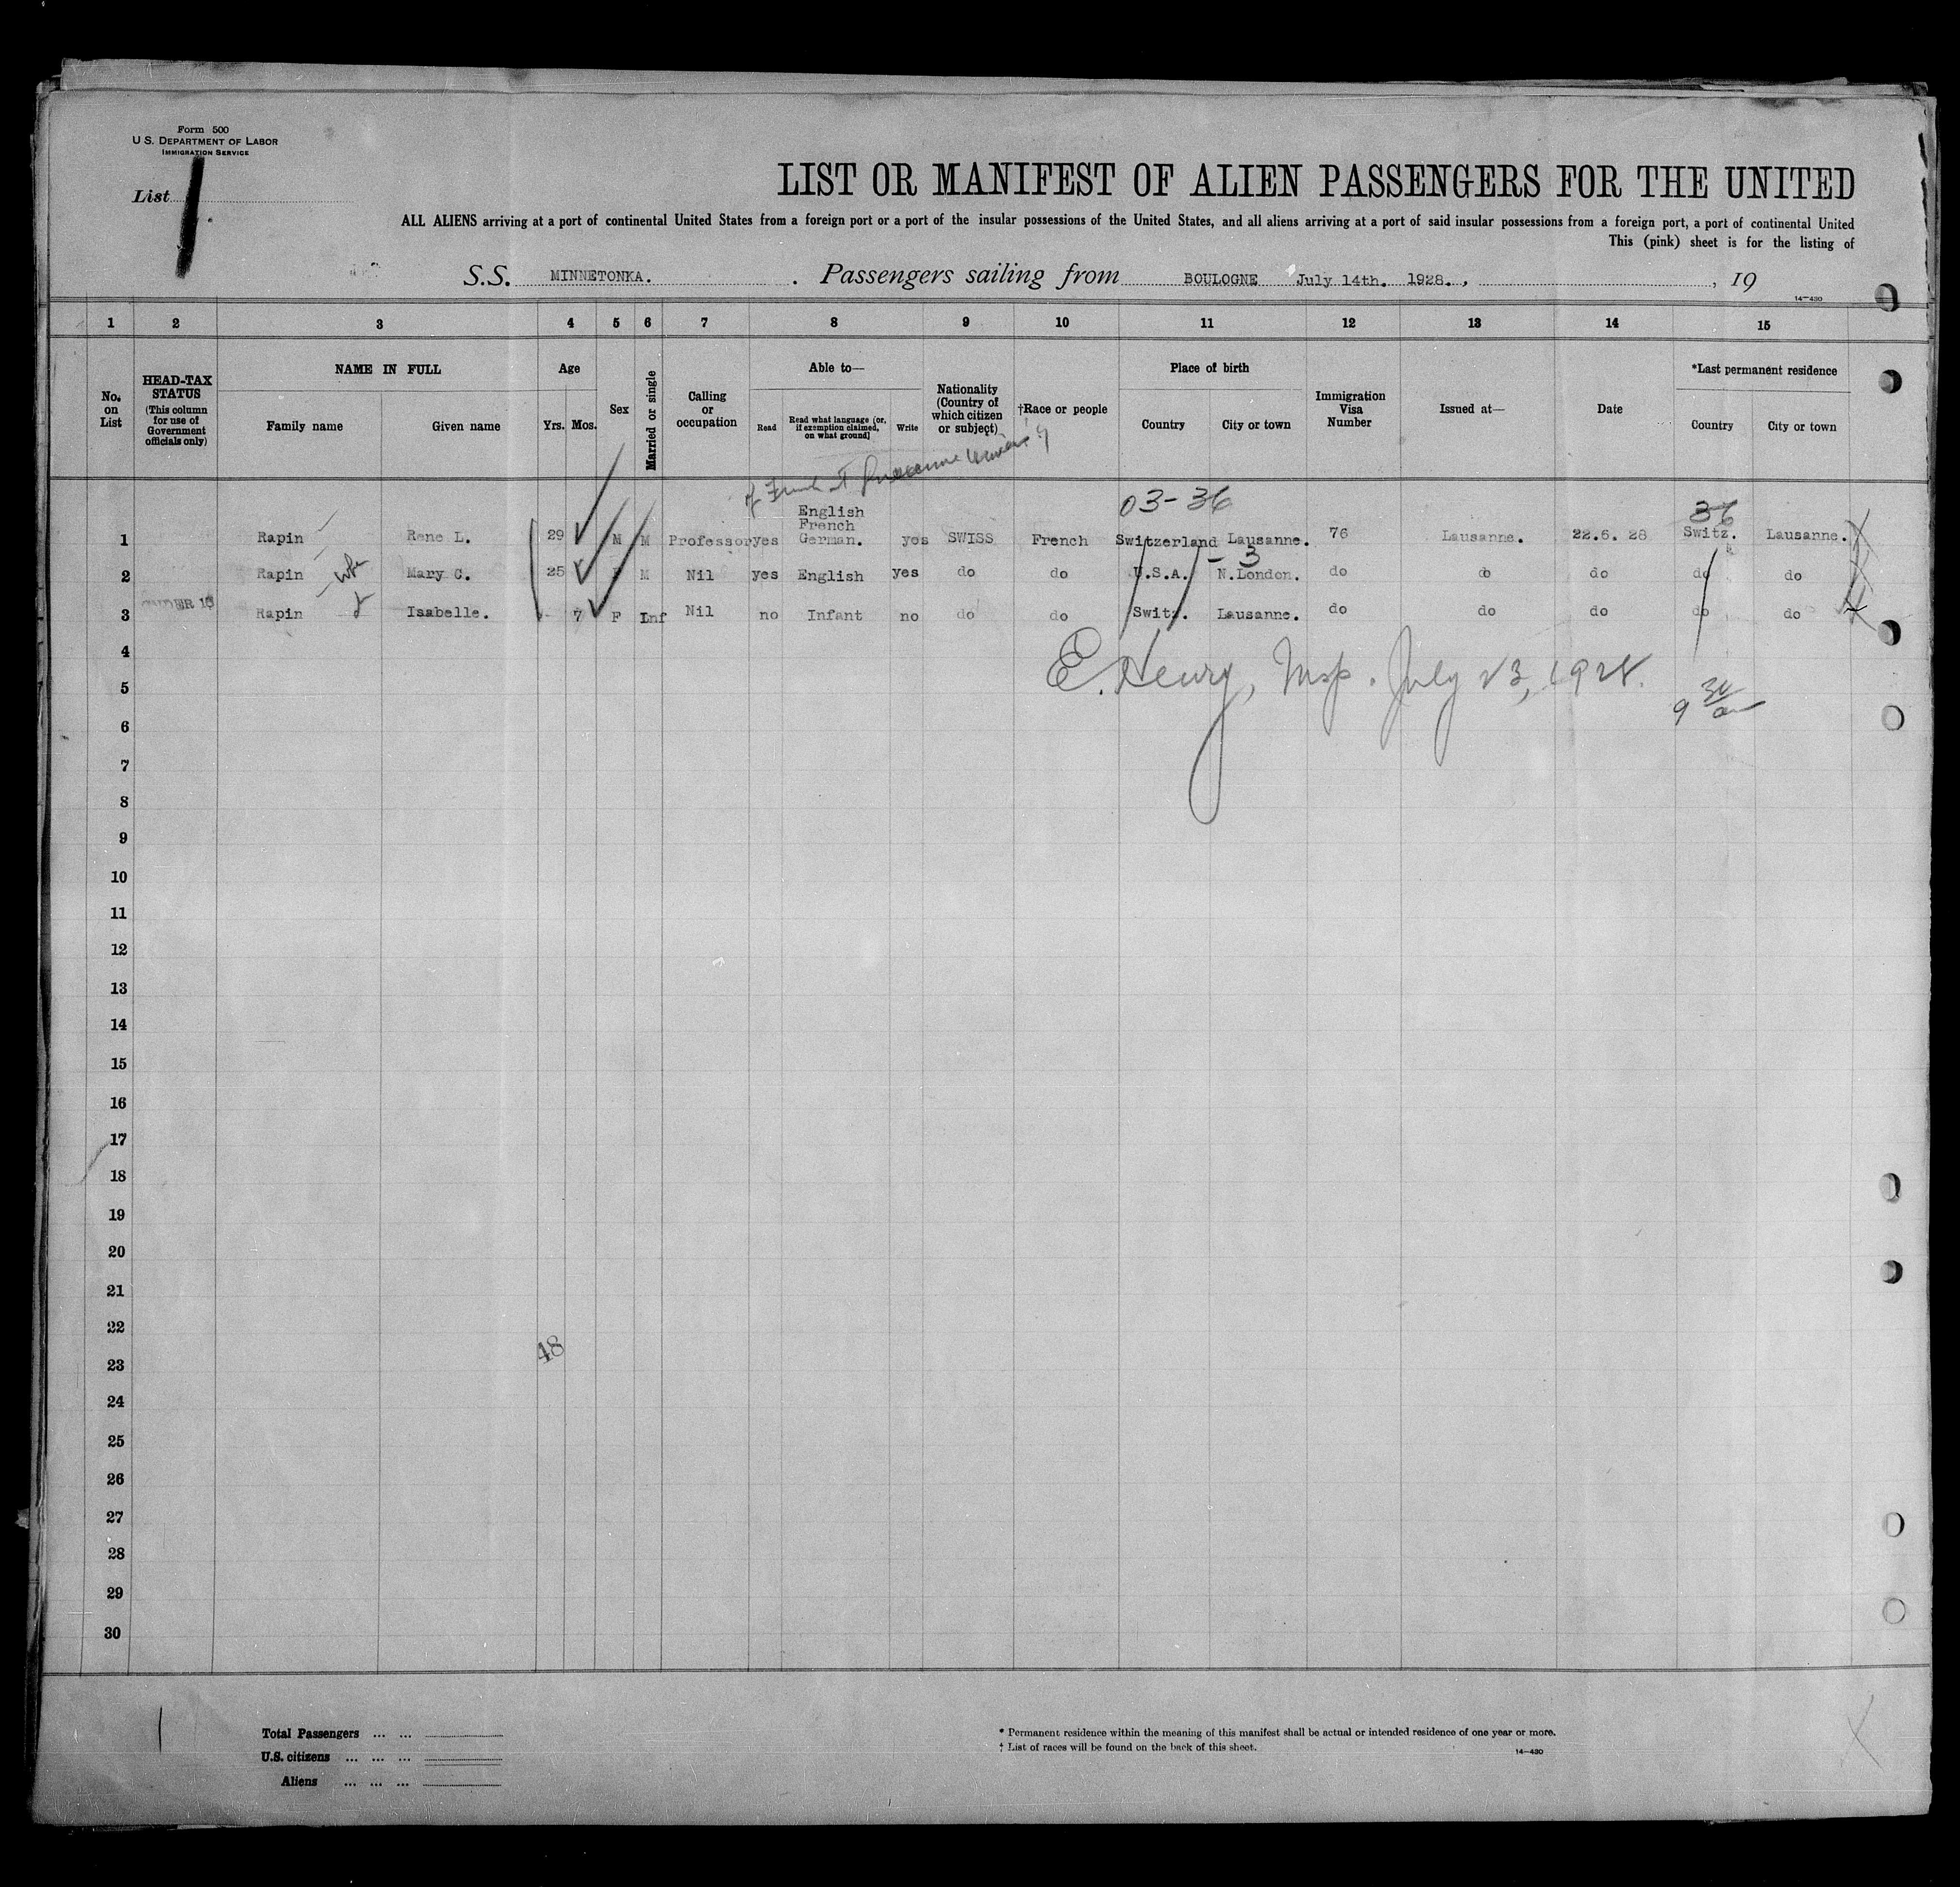 Form 500
U.S. DEPARTMENT OF LABOR
IMMIGRATION SERVICE
List 1
LIST OR MANIFEST OF ALIEN PASSENGERS FOR THE UNITED
ALL ALIENS arriving at a port of continental United States from a foreign port or a port of the insular possessions of the United States, and all aliens arriving at a port of said insular possessions from a foreign port, a port of continental United
This (pink) sheet is for the listing of
S.S. MINNETONKA. . Passengers sailing from BOULOGNE July 14th. 1928. , , 19
14—430
1 2 3 4 5 6 7 8 9 10 11 12 13 14 15
No. on List
HEAD-TAX STATUS (This column for use of Government officials only)
NAME IN FULL
Family name Given name
Age
Yrs. Mos.
Sex
Married or single
Calling or occupation
Able to—
Read Read what language [or, if exemption claimed, on what ground] Write
Nationality (Country of which citizen or subject)
†Race or people
Place of birth
Country City or town
Immigration Visa Number
Issued at—
Date
*Last permanent residence
Country City or town
03-36
36
1 Rapin Rene L. 29 M M Professor yes English French German. yes SWISS French Switzerland Lausanne. 76 Lausanne. 22.6. 28 Switz. Lausanne.
- 3
2 Rapin wfe Mary C. 25 F M Nil yes English yes do do U.S.A. N.London. do do do do do
UNDER 16
3 Rapin d Isabelle. 7 F Inf Nil no Infant no do do Switz. Lausanne. do do do do do
4
E. Henry, Insp. July 23, 1928.
5
9 30 am
6
7
8
9
10
11
12
13
14
15
16
17
18
19
20
21
22
48
23
24
25
26
27
28
29
30
Total Passengers ... ...
U.S. citizens ... ... ...
Aliens ... ... ...
* Permanent residence within the meaning of this manifest shall be actual or intended residence of one year or more.
† List of races will be found on the back of this sheet.
14—430